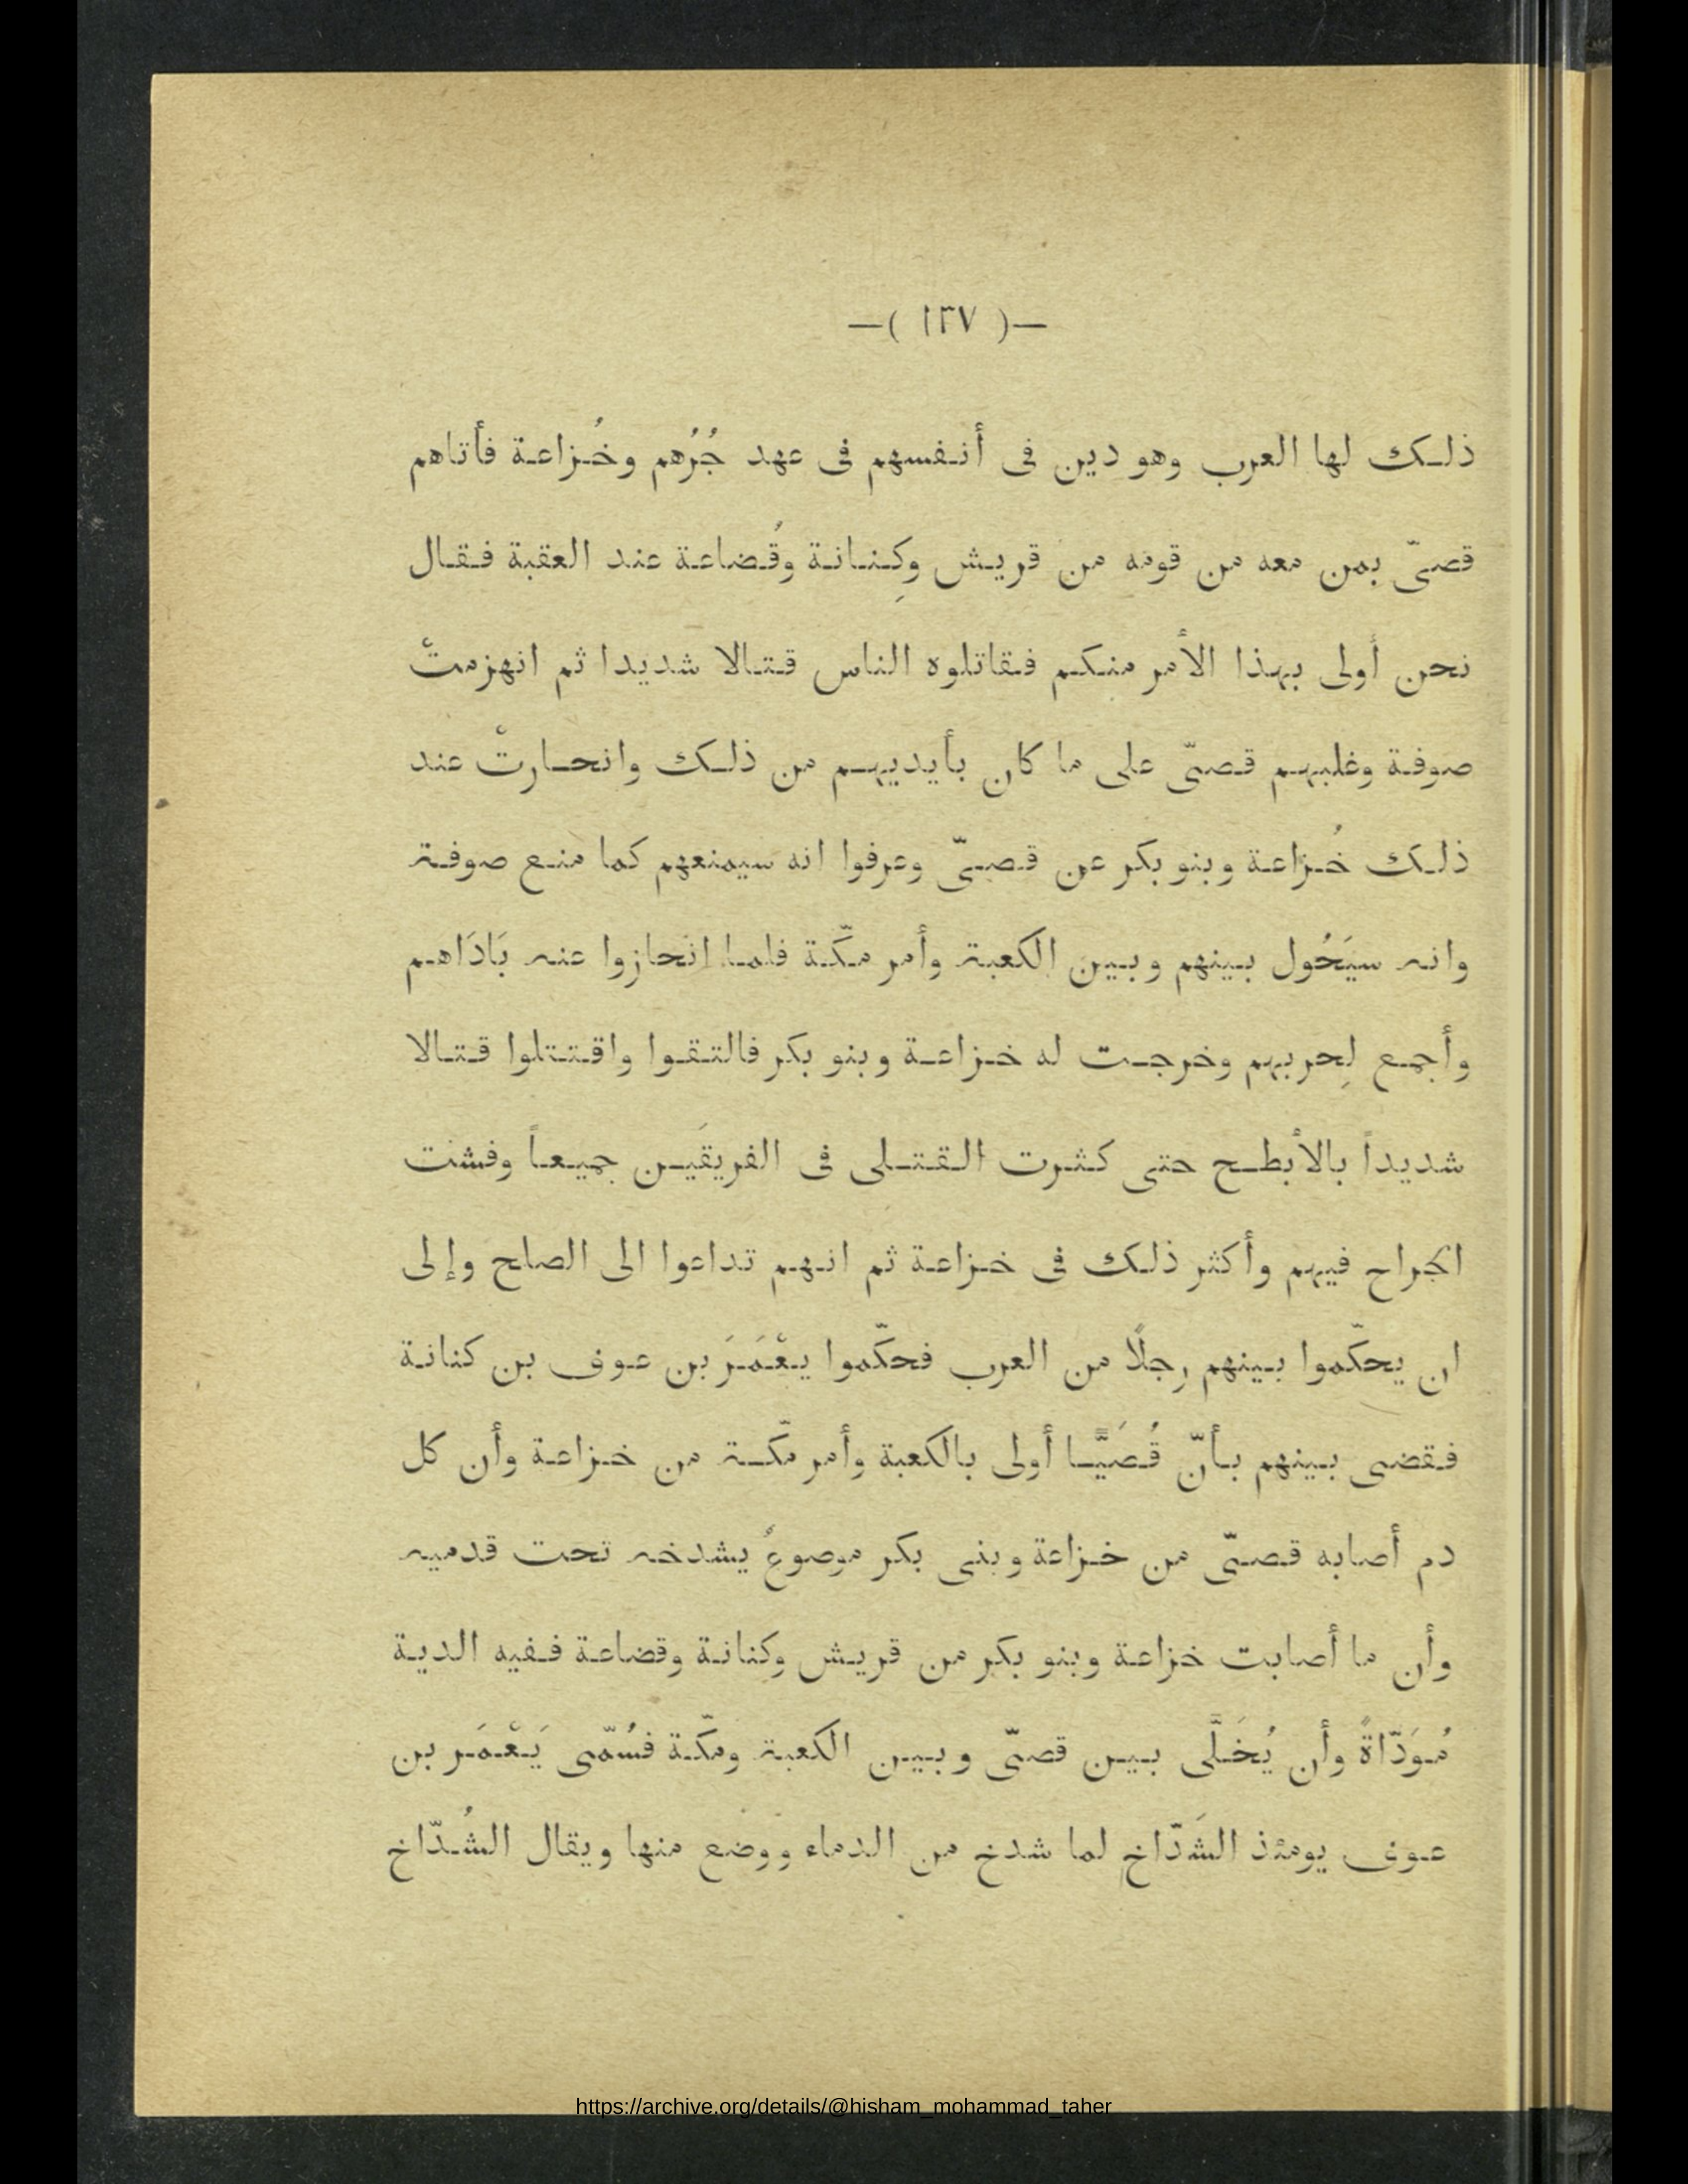 —( ١٣٧ )—
ذلك لها العرب وهو دين فى أنفسهم فى عهد جُرُهم وخُزاعة فأتاهم
قصىّ بمن معه من قومه من قريش وكِنانة وقُضاعة عند العقبة فقال
نحن أولى بهذا الأمر منكم فقاتلوه الناس قتالا شديدا ثم انهزمتْ
صوفة وغلبهم قصىّ على ما كان بأيديهم من ذلك وانحارتْ عند
ذلك خُزاعة وبنو بكر عن قصىّ وعرفوا انه سيمنعهم كما منع صوفة
وانه سيَحُول بينهم وبين الكعبة وأمر مكّة فلما انحازوا عنه بَادَاهم
وأجمع لِحربهم وخرجت له خزاعة وبنو بكر فالتقوا واقتتلوا قتالا
شديداً بالأبطح حتى كثرت القتلى فى الفريقَين جميعاً وفشت
الجراح فيهم وأكثر ذلك فى خزاعة ثم انهم تداعوا الى الصلح وإلى
ان يحكّموا بينهم رجلًا من العرب فحكّموا يعْمَرَ بن عوف بن كنانة
فقضى بينهم بأنّ قُصَيًّا أولى بالكعبة وأمر مكّة من خزاعة وأن كل
دم أصابه قصىّ من خزاعة وبنى بكر موصوعٌ يشدخه تحت قدميه
وأن ما أصابت خزاعة وبنو بكر من قريش وكنانة وقضاعة ففيه الدية
مُوَدّاةً وأن يُخَلَّى بين قصىّ وبين الكعبة ومكّة فسُمّى يَعْمَر بن
عوف يومئذ الشَدّاخ لما شدخ من الدماء ووضع منها ويقال الشُدّاخ
https://archive.org/details/@hisham_mohammad_taher